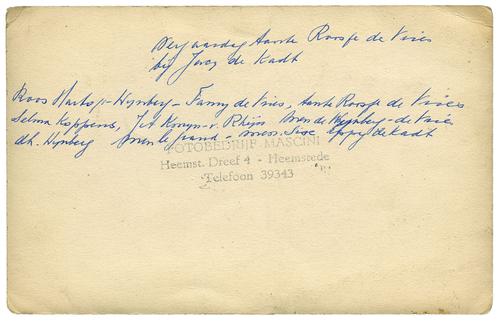 Verjaardag tante Roosje de Vries
bij Jaap de Kadt
Roos Hartog - Wijnberg - Fanny de Vries, tante Roosje de Vries
Selma Koppens, Jet v. Rhijn de Wijnberg - de Vries
dh. Wijnberg - mevr. Eppy de Kadt
FOTOBEDRIJF MASCINI
Heemst. Dreef 4 - Heemstede
Telefoon 39343